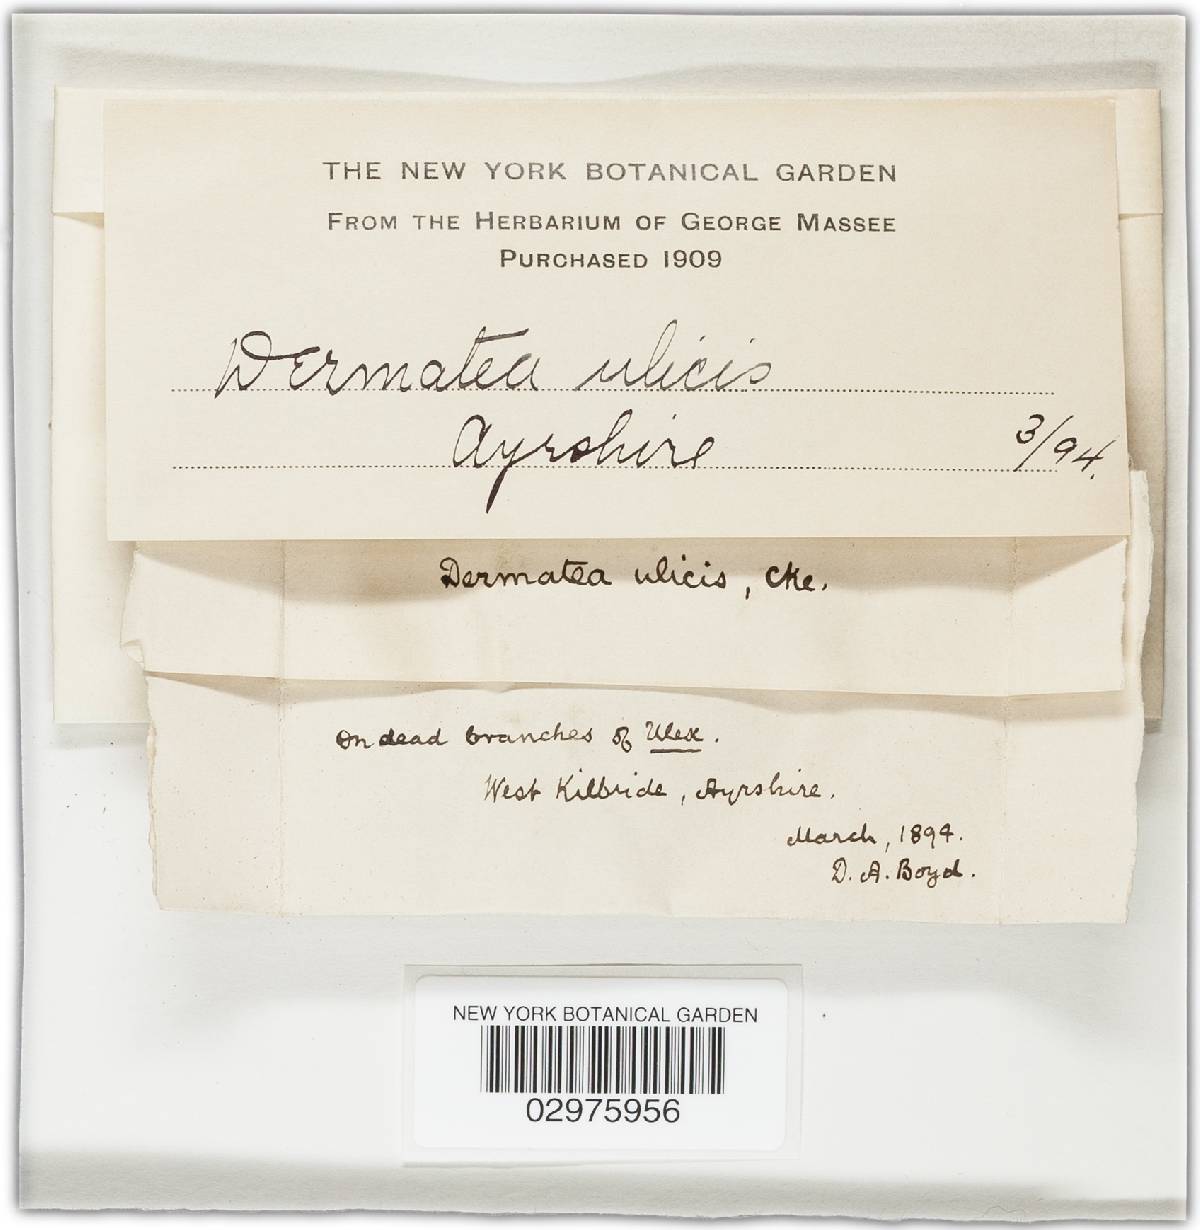 THE NEW YORK BOTANICAL GARDEN
FROM THE HERBARIUM OF GEORGE MASSEE
PURCHASED 1909
Dermatea ulicis
Ayrshire 3/94.
Dermatea ulicis, Cke.
On dead branches of Ulex.
West Kilbride, Ayrshire.
March, 1894.
D. A. Boyd.
NEW YORK BOTANICAL GARDEN
02975956